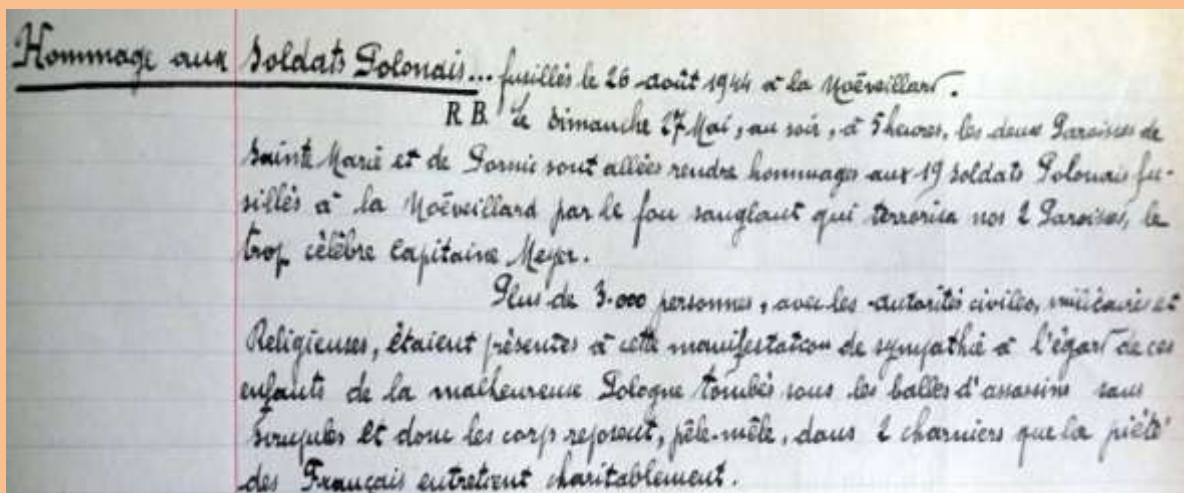 Hommage aux Soldats Polonais... fusillés le 26 août 1944 à la Noëveillard.
R B. Le Dimanche 27 Mai, au soir, à 5 heures, les deux Paroisses de
Sainte Marie et de Pornic sont allées rendre hommages aux 19 soldats Polonais fu-
sillés à la Noëveillard par le fou sanglant qui terrorisa nos 2 Paroisses, le
trop célèbre Capitaine Meyer.
Plus de 3.000 personnes, avec les autorités civiles, militaires et
Religieuses, étaient présentes à cette manifestation de sympathie à l'égard de ces
enfants de la malheureuse Pologne tombés sous les balles d'assassins sans
scrupules et donc les corps reposent, pêle-mêle, dans 2 charniers que la piété
des Français entretient charitablement.